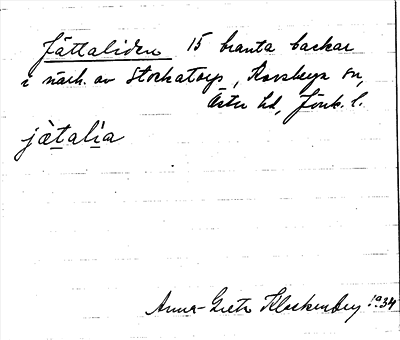 Jättaliden 15 branta backar
i närh. av Storkatorp, Korsberga sn,
Östra hd, Jönk. l.
jä̀talìa
Anna-Greta Klockenberg 1934